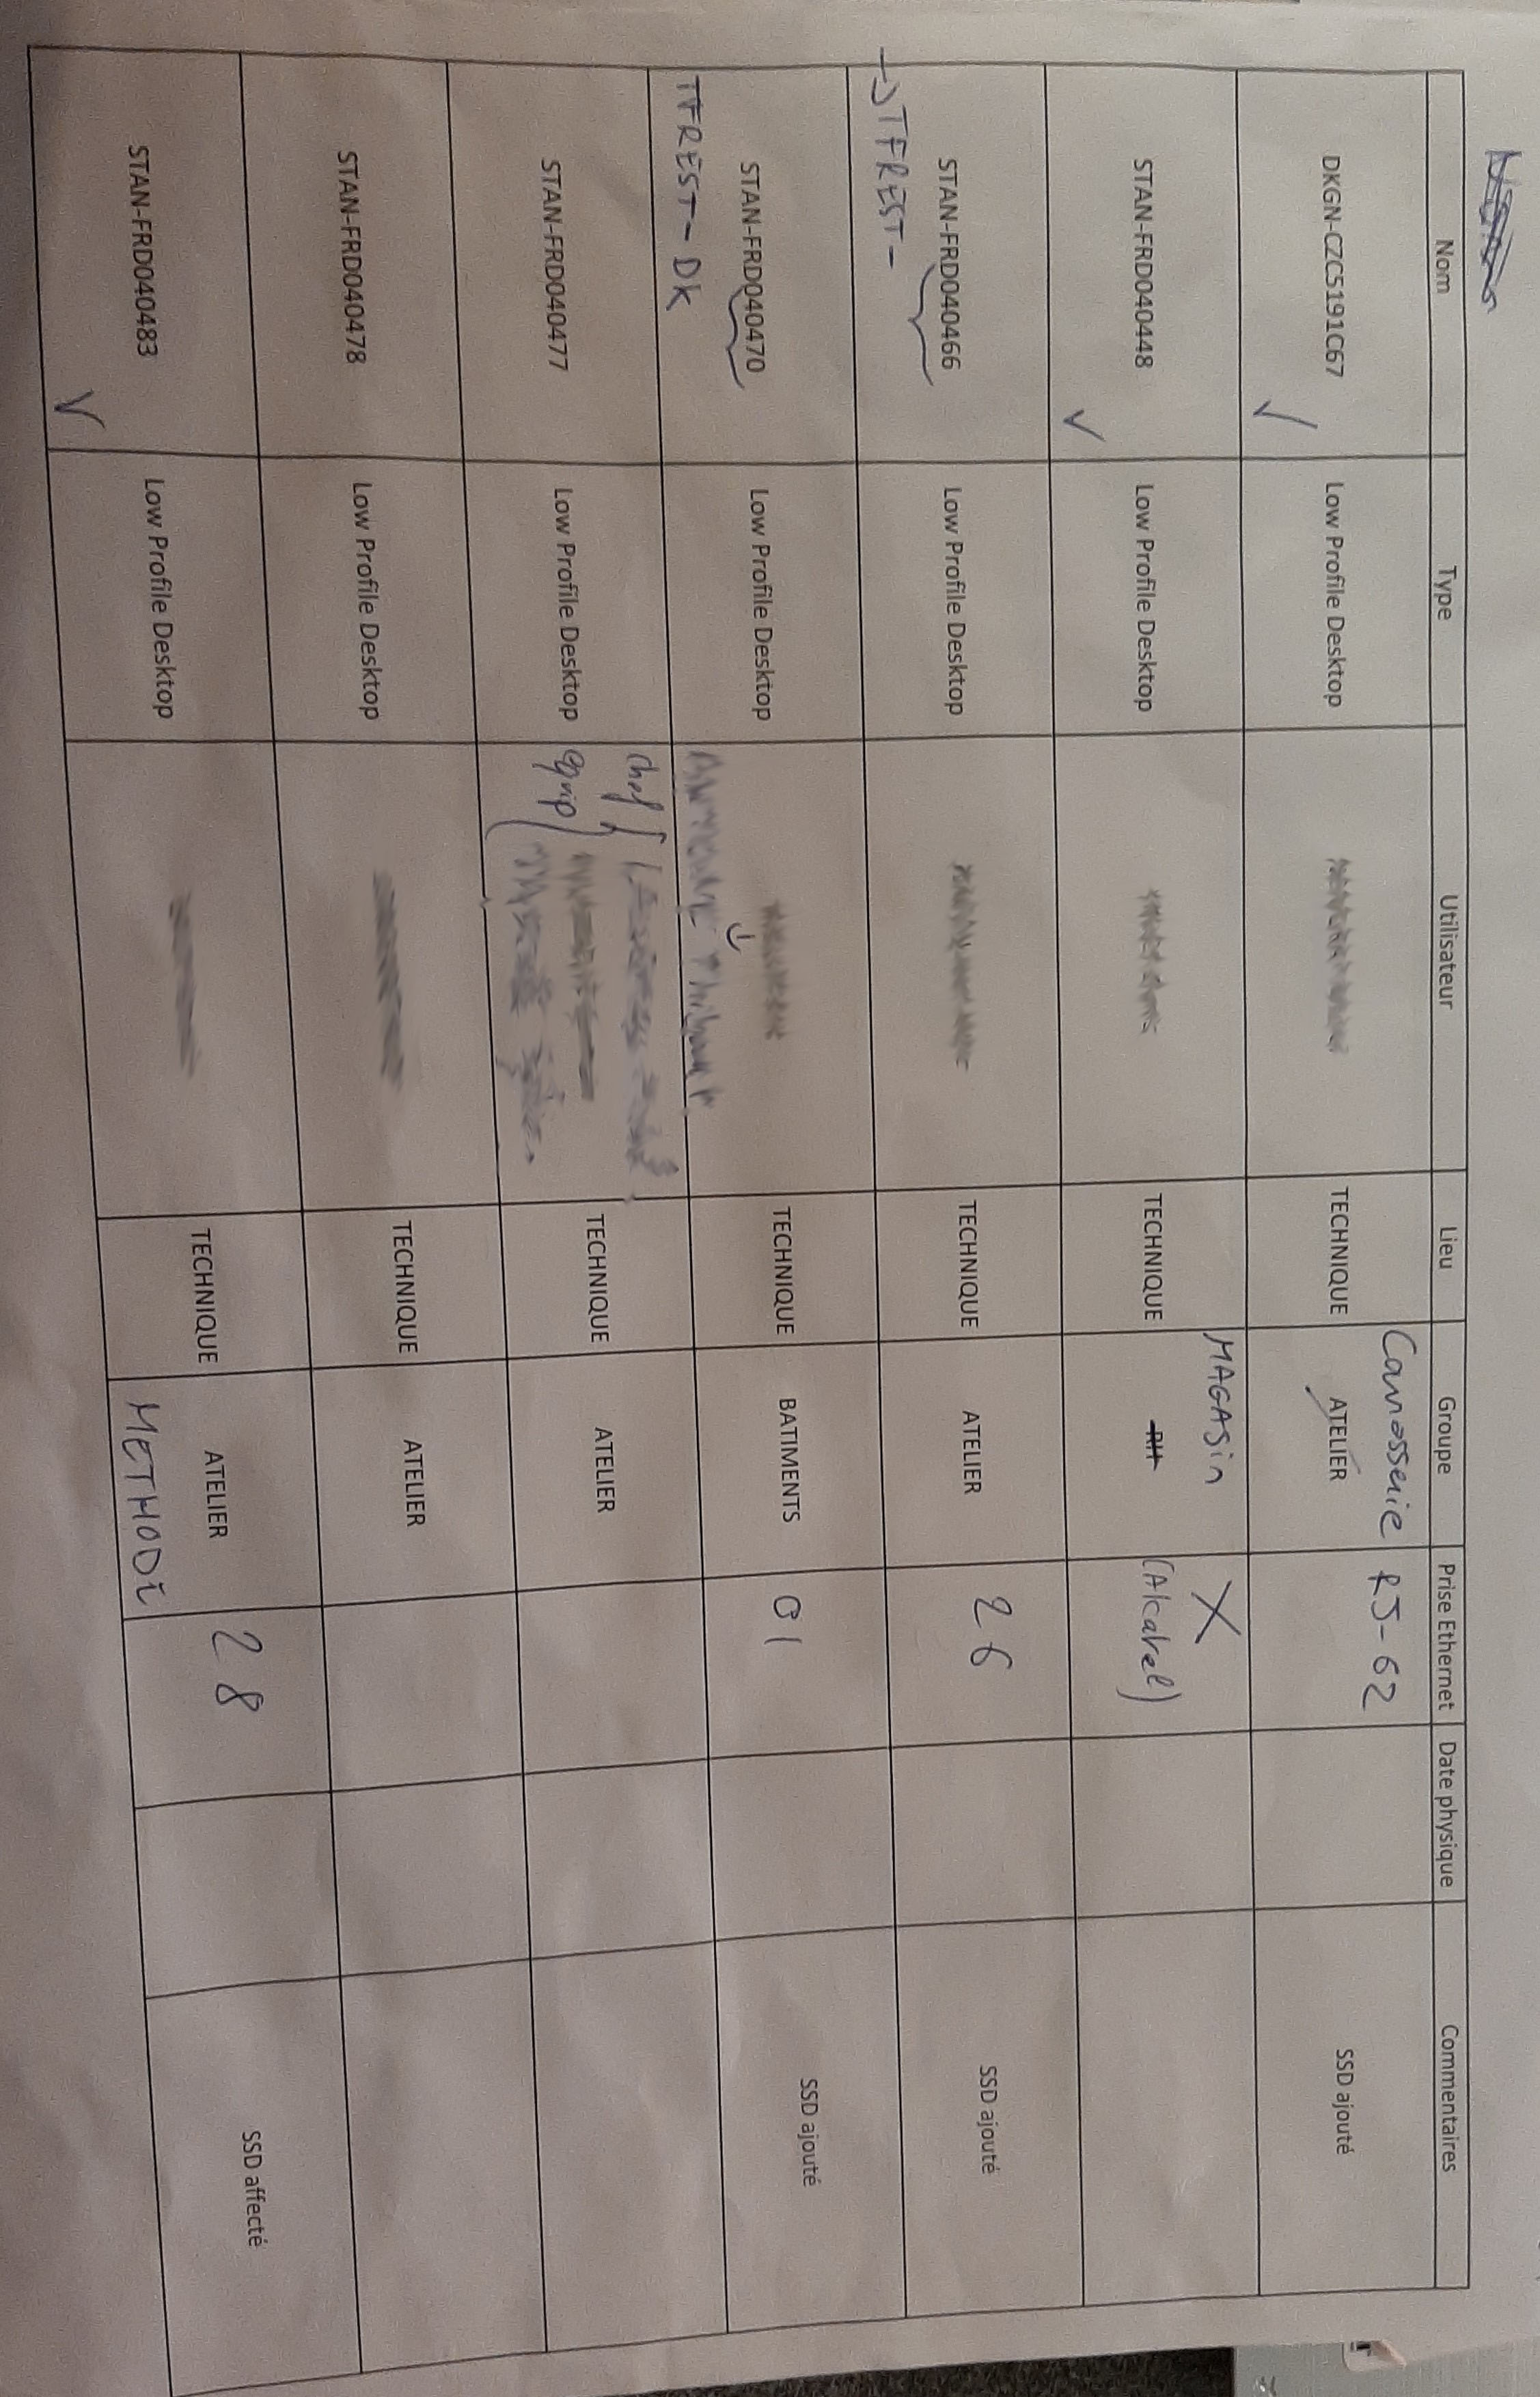 Nom Type Utilisateur Lieu Groupe Prise Ethernet Date physique Commentaires
Carrosserie RJ-62
DKGN-CZC5191C67 Low Profile Desktop TECHNIQUE ATELIER SSD ajouté
MAGASin X
STAN-FRD040448 Low Profile Desktop TECHNIQUE RH (Alcatel)
STAN-FRD040466 Low Profile Desktop TECHNIQUE ATELIER 26 SSD ajouté
→TFREST-
STAN-FRD040470 Low Profile Desktop TECHNIQUE BATIMENTS 01 SSD ajouté
TFREST-DK
chef
STAN-FRD040477 Low Profile Desktop equip TECHNIQUE ATELIER
STAN-FRD040478 Low Profile Desktop TECHNIQUE ATELIER
STAN-FRD040483 Low Profile Desktop TECHNIQUE ATELIER 28 SSD affecté
METHODE